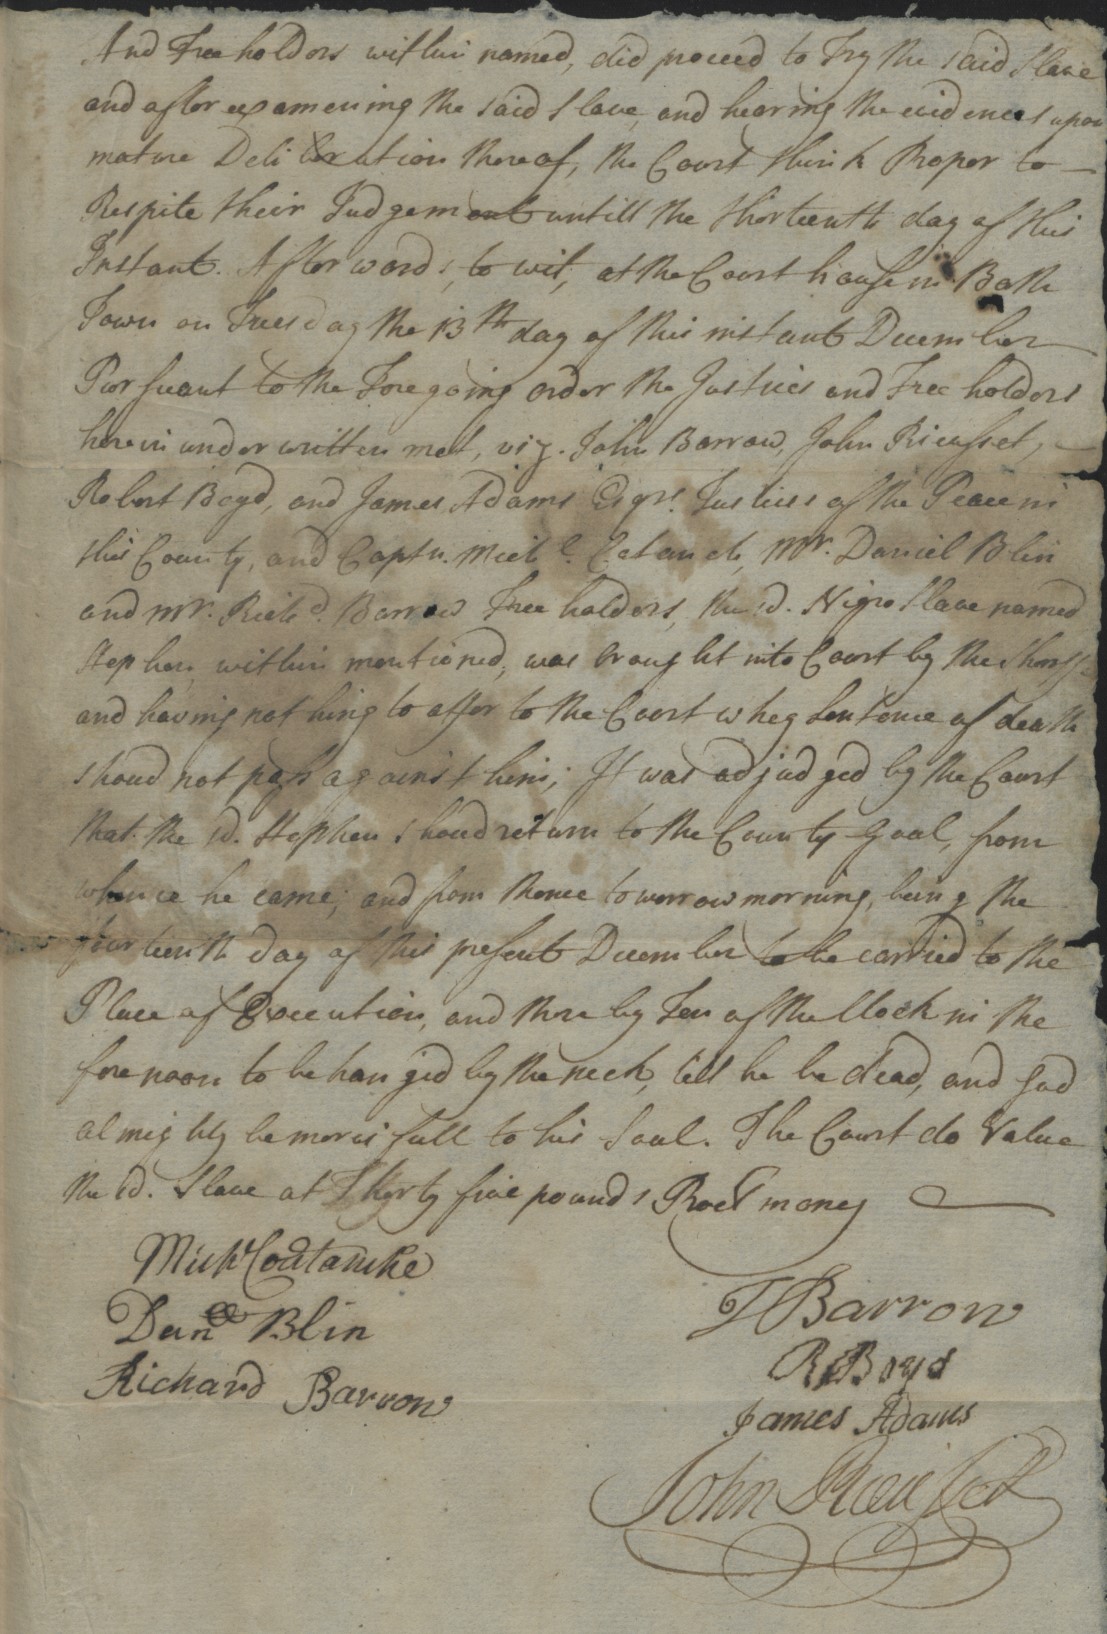 And Free holders within named, did proceed to Try the said Slave
and after examening the said Slave, and hearing the evidences upon
mature Deliberation thereof, the Court think Proper to
Respite their Judgement untill the thirteenth day of this
Instant. Afterwards, to wit, at the Court house in Bath
Town on Tuesday the 13th day of this instant December
Pursuant to the Foregoing order the Justices and Free holders
herein under written met, viz. John Barrow, John Rieusset,
Robert Boyd, and James Adams Esqrs. Justices of the Peace in
this County, and Captn. Michl. Cotanch, Mr. Daniel Blin
and Mr. Richd. Barrow Free holders, the sd. Negro Slave named
Stephen, within mentioned, was brought into Court by the Sheriff
and having nothing to offer to the Court whey Sentence of death
shoud not pass against him; It was adjudged by the Court
that the sd. Stephen shoud return to the County Goal, from
whence he came; and from thence tomorrow morning, being the
fourteenth day of this present December to be carried to the
Place of Execution, and there by Ten of the Clock in the
forenoon to be hanged by the neck, till he be dead, and God
almighty be mercifull to his Soul. The Court do Value
the sd. Slave at Thyrty five pounds Procl money
Michl Coutanche
Danll Blin
Richard Barrow
J Barrow
R Boyd
James Adams
John Rieusset